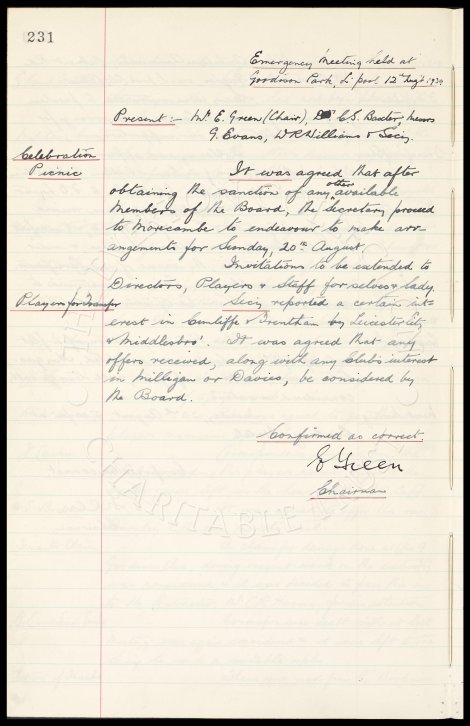 231
Emergency Meeting held at
Goodison Park, L'pool 12th Aug't 1939
Present :- Mr. E. Green (Chair), C.S. Baxter, Messrs
G. Evans, W.R. Williams & Secy.
Celebration
Picnic
It was agreed that after
obtaining the sanction of any other available
Members of the Board, the Secretary proceed
to Morecambe to endeavour to make arr-
angements for Sunday, 20th August.
Invitations to be extended to
Directors, Players & Staff for selves & lady.
Players for Transfer
Secy reported a certain int-
erest in Cunliffe & Trentham by Leicester City
& Middlesbro'. It was agreed that any
offers received, along with any Clubs interest
in Milligan or Davies, be considered by
the Board.
Confirmed as correct
E Green
Chairman
CHARITABLE